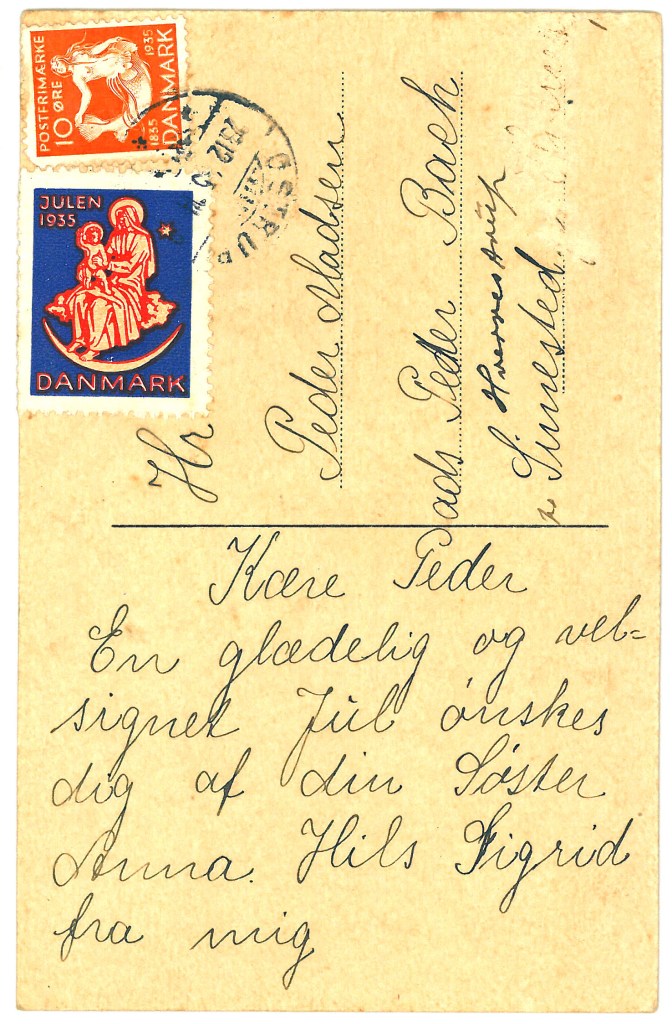 POSTFRIMÆRKE
10 ØRE
1835
1935
DANMARK
JULEN
1935
DANMARK
Hr
Peder Madsen
ads Peder Bach
Simested
Kære Peder
En glædelig og vel=
signet Jul ønskes
dig af din Søster
Anna. Hils Sigrid
fra mig